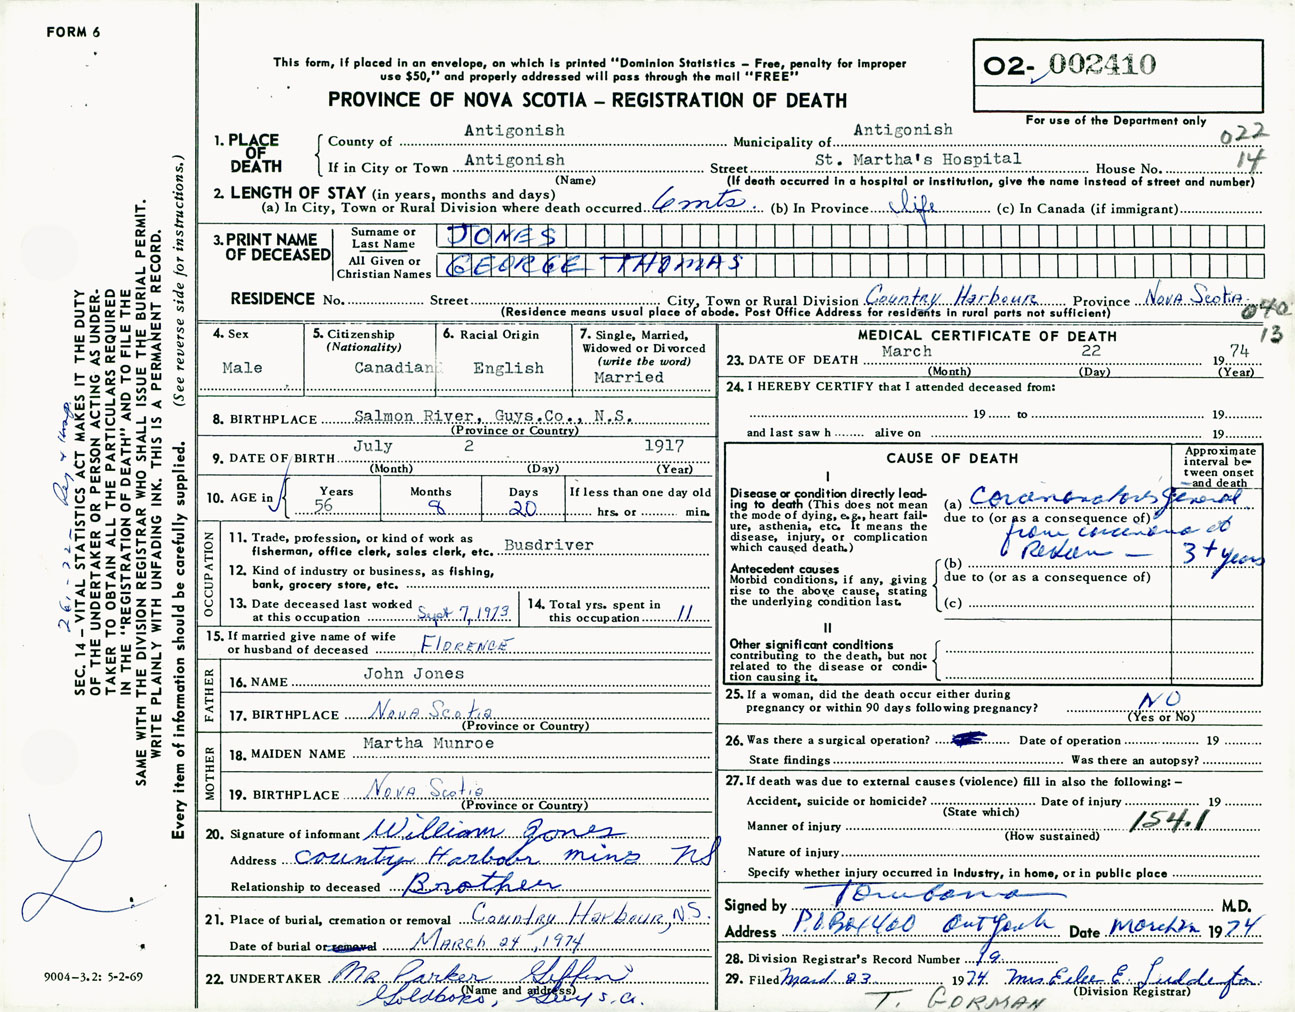 FORM 6
This form, if placed in an envelope, on which is printed "Dominion Statistics – Free, penalty for improper
use $50," and properly addressed will pass through the mail "FREE"
PROVINCE OF NOVA SCOTIA – REGISTRATION OF DEATH
O2- 002410
For use of the Department only
022
14
1. PLACE OF DEATH
County of Antigonish Municipality of Antigonish
If in City or Town Antigonish Street St. Martha's Hospital House No.
(Name) (If death occurred in a hospital or institution, give the name instead of street and number)
2. LENGTH OF STAY (in years, months and days)
(a) In City, Town or Rural Division where death occurred 6 mts. (b) In Province life (c) In Canada (if immigrant)
3. PRINT NAME OF DECEASED
Surname or Last Name JONES
All Given or Christian Names GEORGE THOMAS
RESIDENCE No. Street City, Town or Rural Division Country Harbour Province Nova Scotia
(Residence means usual place of abode. Post Office Address for residents in rural parts not sufficient)
040
13
4. Sex
Male
5. Citizenship
(Nationality)
Canadian
6. Racial Origin
English
7. Single, Married,
Widowed or Divorced
(write the word)
Married
8. BIRTHPLACE Salmon River, Guys.Co., N.S.
(Province or Country)
9. DATE OF BIRTH July 2 1917
(Month) (Day) (Year)
10. AGE in
Years Months Days If less than one day old
56 8 20 hrs. or min.
OCCUPATION
11. Trade, profession, or kind of work as
fisherman, office clerk, sales clerk, etc. Busdriver
12. Kind of industry or business, as fishing,
bank, grocery store, etc.
13. Date deceased last worked
at this occupation Sept 7, 1973
14. Total yrs. spent in
this occupation 11
15. If married give name of wife
or husband of deceased FLORENCE
FATHER
16. NAME John Jones
17. BIRTHPLACE NOVA SCOTIA
(Province or Country)
MOTHER
18. MAIDEN NAME Martha Munroe
19. BIRTHPLACE NOVA SCOTIA
(Province or Country)
20. Signature of informant William Jones
Address Country Harbour mins NS
Relationship to deceased Brother
21. Place of burial, cremation or removal Country Harbour, N.S.
Date of burial or removal MARCH 24, 1974
22. UNDERTAKER Mr. Parker Giffin
(Name and address)
Goldboro, Guys. Co.
MEDICAL CERTIFICATE OF DEATH
23. DATE OF DEATH March 22 1974
(Month) (Day) (Year)
24. I HEREBY CERTIFY that I attended deceased from:
19 to 19
and last saw h alive on 19
CAUSE OF DEATH
Approximate
interval be-
tween onset
and death
I
Disease or condition directly lead-
ing to death (This does not mean
the mode of dying, e.g., heart fail-
ure, asthenia, etc. It means the
disease, injury, or complication
which caused death.)
(a) general
due to (or as a consequence of)
from carcinoma of
Rectum — 3+ years
Antecedent causes
Morbid conditions, if any, giving
rise to the above cause, stating
the underlying condition last.
(b)
due to (or as a consequence of)
(c)
II
Other significant conditions
contributing to the death, but not
related to the disease or condi-
tion causing it.
25. If a woman, did the death occur either during
pregnancy or within 90 days following pregnancy? NO
(Yes or No)
26. Was there a surgical operation? Date of operation 19
State findings Was there an autopsy?
27. If death was due to external causes (violence) fill in also the following: –
Accident, suicide or homicide? Date of injury 19
(State which)
Manner of injury 154.1
(How sustained)
Nature of injury
Specify whether injury occurred in industry, in home, or in public place
Signed by M.D.
Address P.O. Box 400 Date March 1974
28. Division Registrar's Record Number 19
29. Filed March 23 1974 Mrs E.
(Division Registrar)
T. GORMAN
SEC. 14 – VITAL STATISTICS ACT MAKES IT THE DUTY
OF THE UNDERTAKER OR PERSON ACTING AS UNDER-
TAKER TO OBTAIN ALL THE PARTICULARS REQUIRED
IN THE "REGISTRATION OF DEATH" AND TO FILE THE
SAME WITH THE DIVISION REGISTRAR WHO SHALL ISSUE THE BURIAL PERMIT.
WRITE PLAINLY WITH UNFADING INK. THIS IS A PERMANENT RECORD.
Every item of information should be carefully supplied. (See reverse side for instructions.)
9004-3.2: 5-2-69